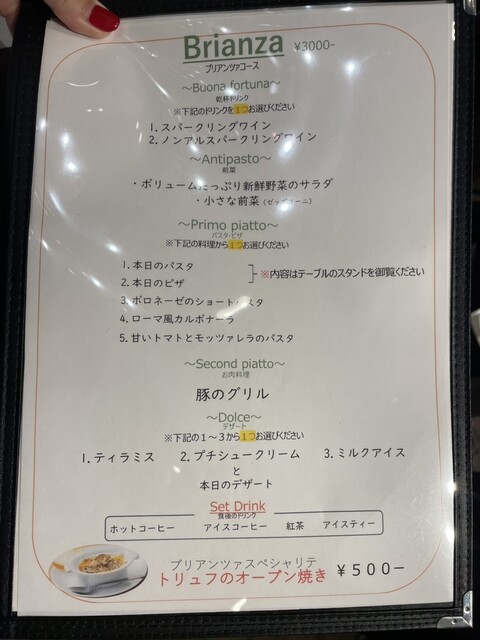 Brianza ¥3000-
ブリアンツァコース
～Buona fortuna～
乾杯ドリンク
※下記のドリンクを1つお選びください
1. スパークリングワイン
2. ノンアルスパークリングワイン
～Antipasto～
前菜
・ボリュームたっぷり新鮮野菜のサラダ
・小さな前菜（ゼッポリーニ）
～Primo piatto～
パスタ・ピザ
※下記の料理から1つお選びください
1. 本日のパスタ
2. 本日のピザ
※内容はテーブルのスタンドを御覧ください
3. ボロネーゼのショートパスタ
4. ローマ風カルボナーラ
5. 甘いトマトとモッツァレラのパスタ
～Second piatto～
お肉料理
豚のグリル
～Dolce～
デザート
※下記の1～3から1つお選びください
1. ティラミス 2. プチシュークリーム 3. ミルクアイス
と
本日のデザート
Set Drink
食後のドリンク
ホットコーヒー アイスコーヒー 紅茶 アイスティー
ブリアンツァスペシャリテ
トリュフのオーブン焼き ￥500-